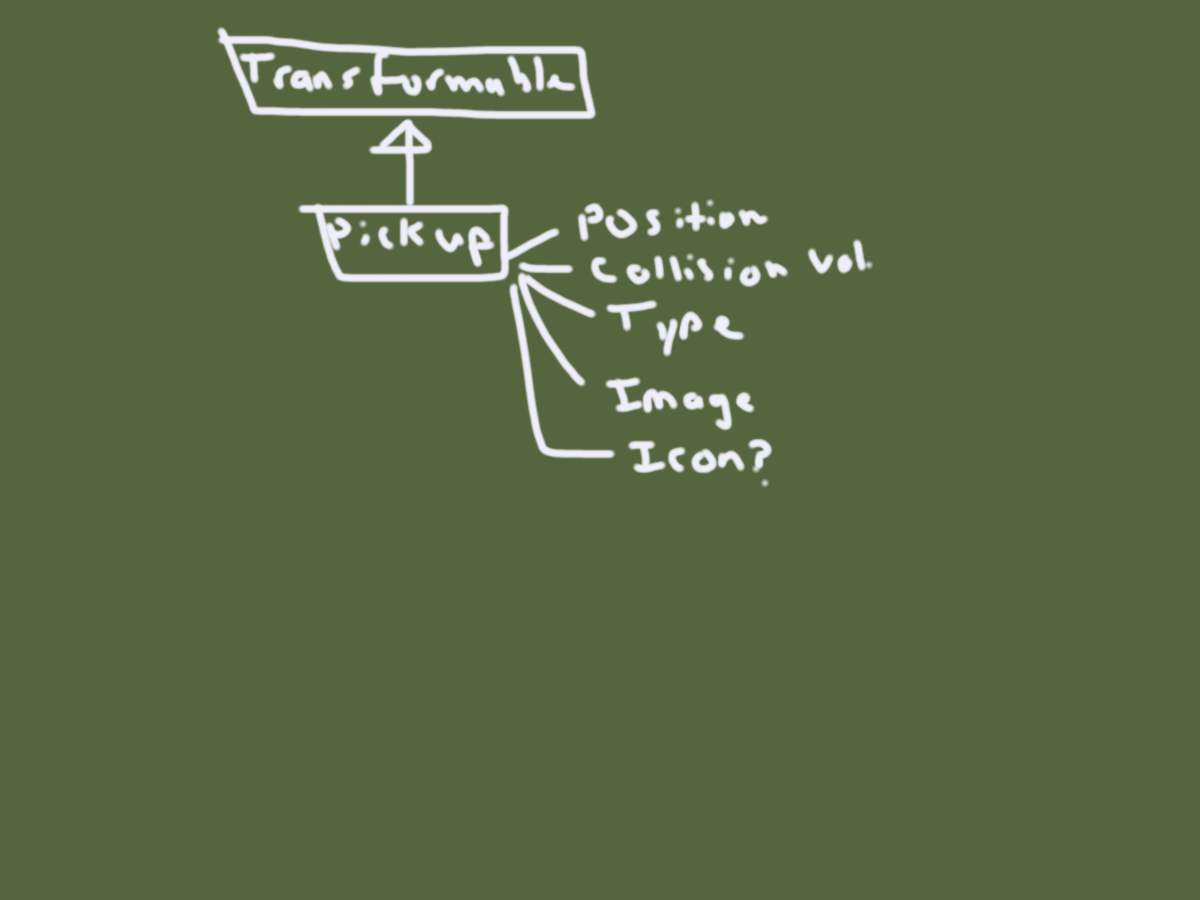 Transformable
Pickup
Position
Collision Vol.
Type
Image
Icon?